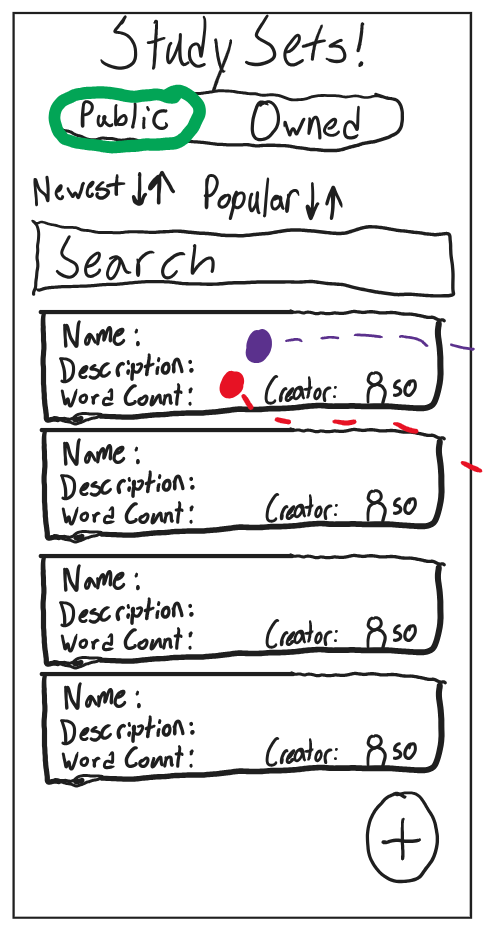 Study Sets!
Public Owned
Newest ↓↑ Popular ↓↑
Search
Name:
Description:
Word Count: Creator: 50
Name:
Description:
Word Count: Creator: 50
Name:
Description:
Word Count: Creator: 50
Name:
Description:
Word Count: Creator: 50
+